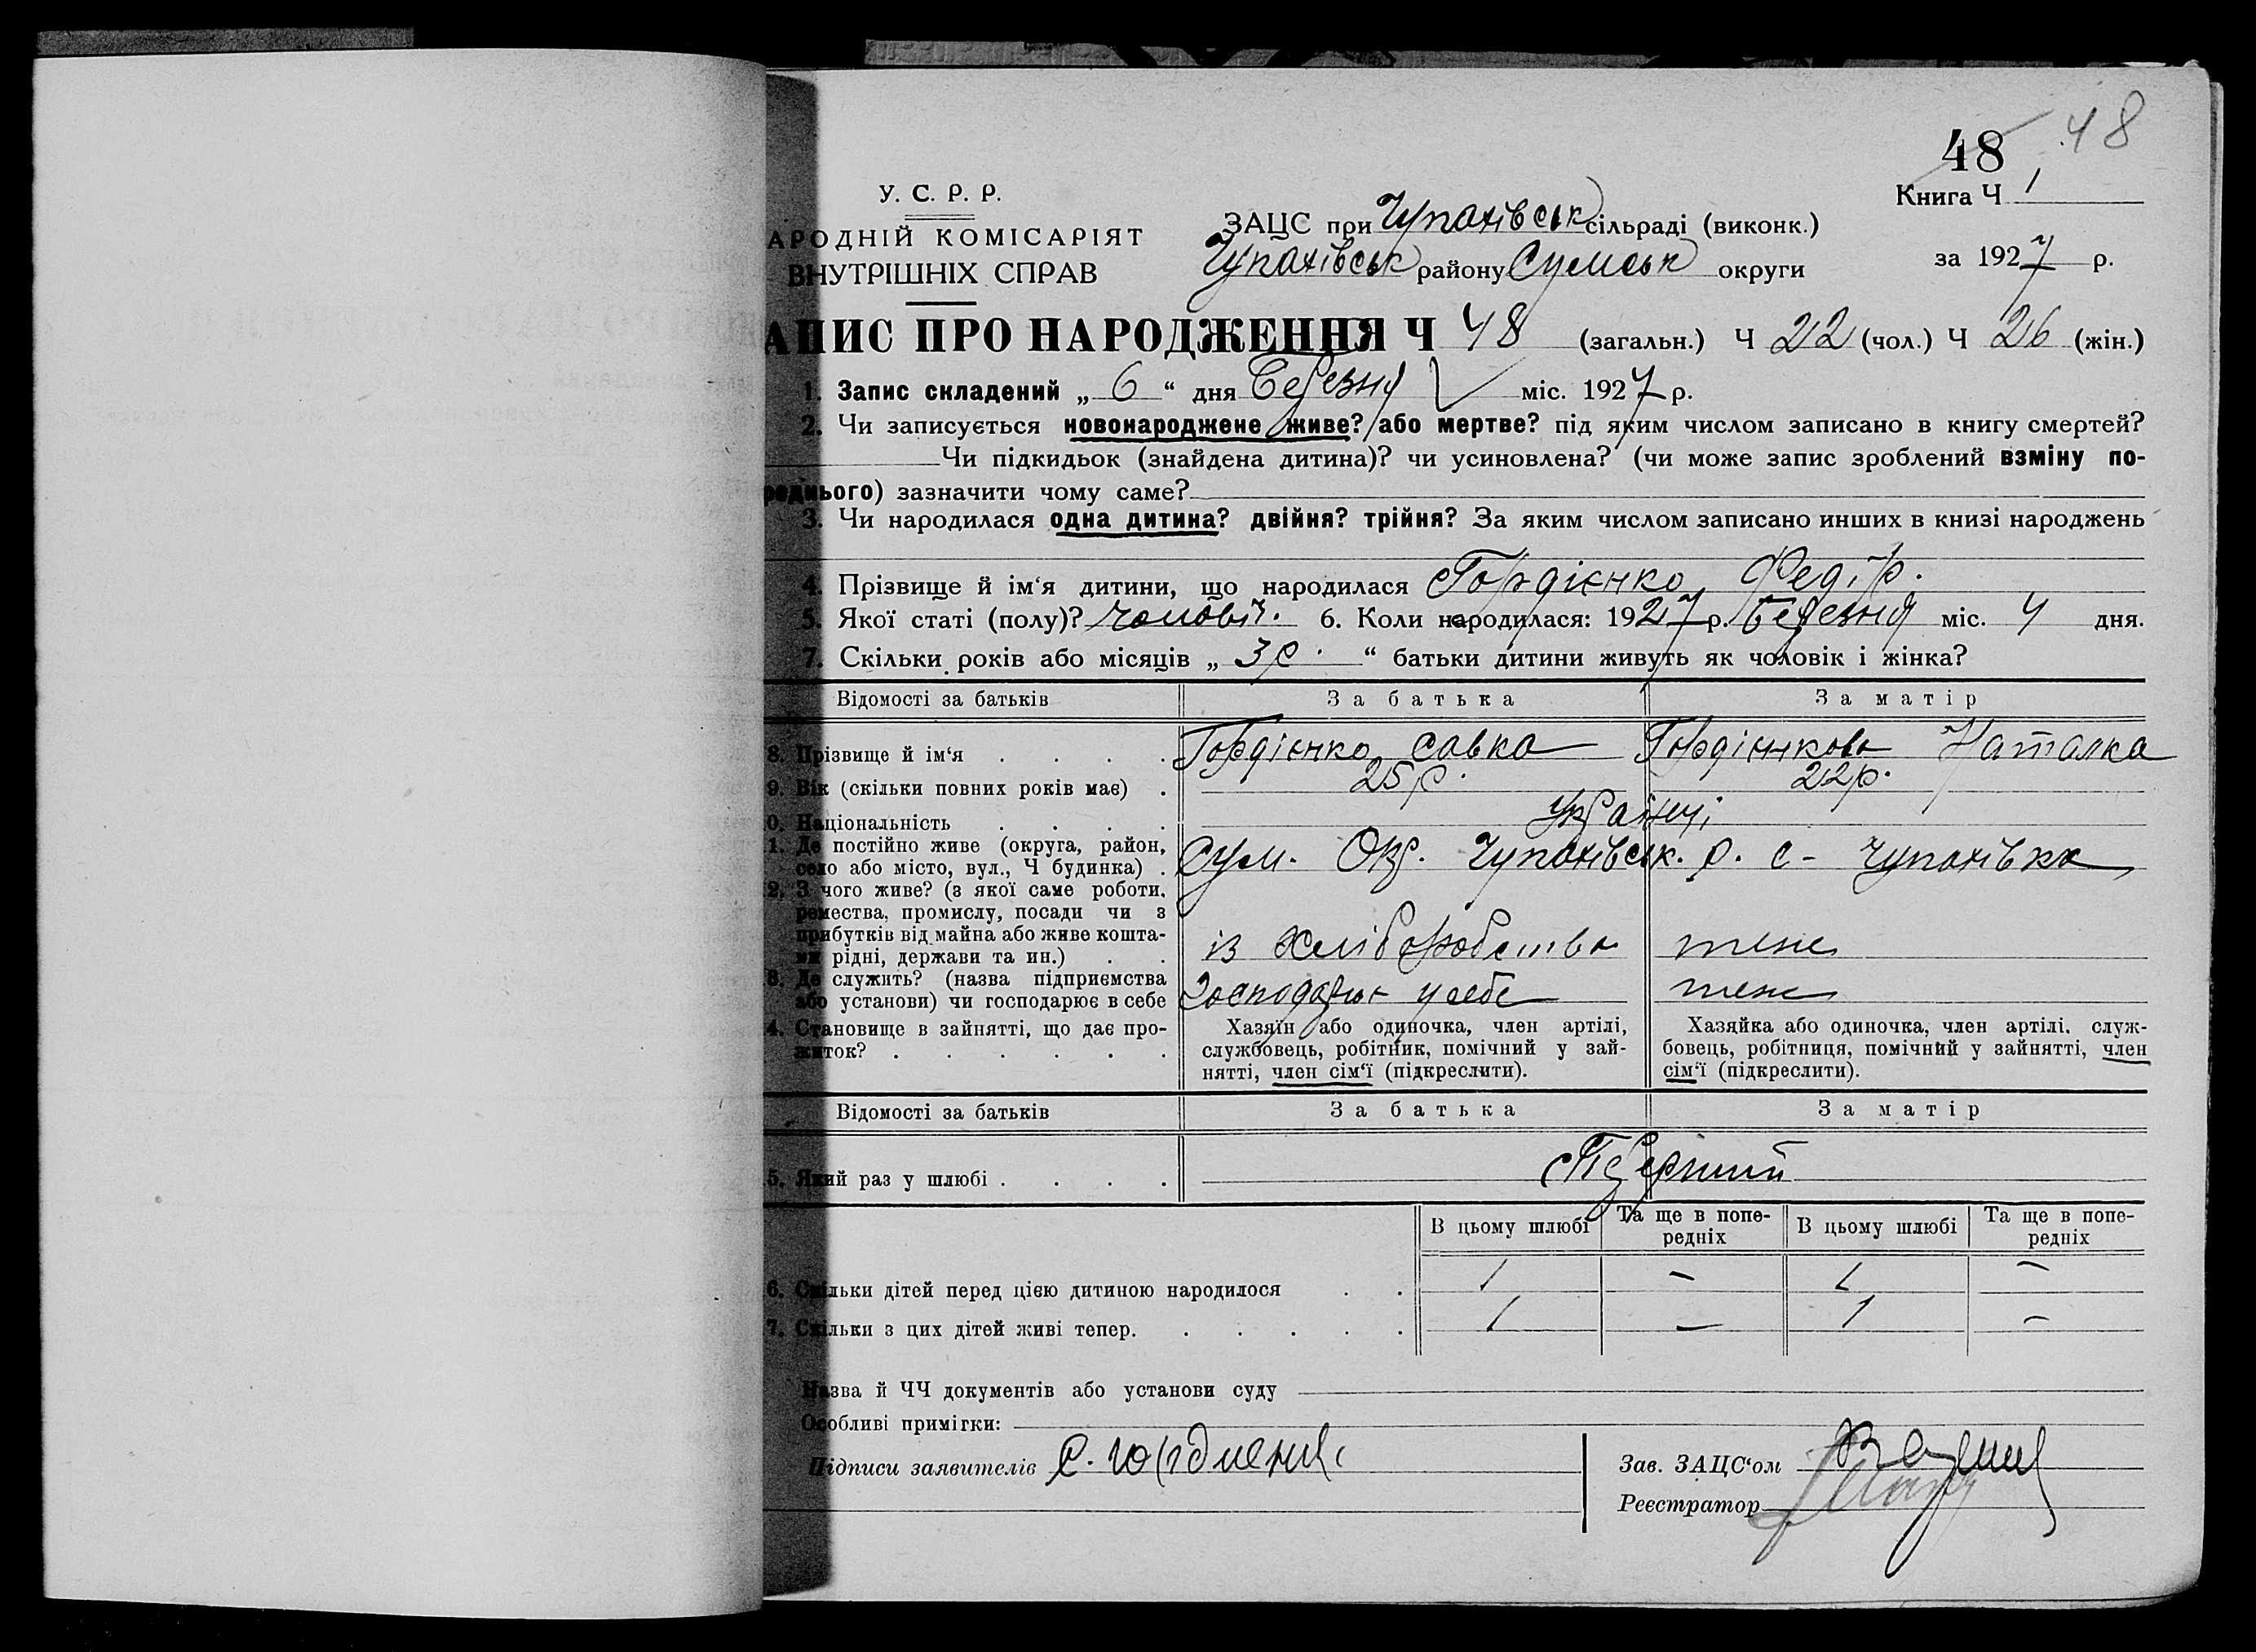 48 48
У. С. Р. Р.
Книга Ч 1
АРОДНІЙ КОМІСАРІЯТ
ВНУТРІШНІХ СПРАВ
ЗАЦС при Чупахівськ сільраді (виконк.)
Чупахівськ району Сумськ округи
за 1927 р.
АПИС ПРО НАРОДЖЕННЯ Ч 48 (загальн.) Ч 22 (чол.) Ч 26 (жін.)
1. Запис складений „ 6 “ дня Березня міс. 1927 р.
2. Чи записується новонароджене живе? або мертве? під яким числом записано в книгу смертей?
Чи підкидьок (знайдена дитина)? чи усиновлена? (чи може запис зроблений взміну по-
реднього) зазначити чому саме?
3. Чи народилася одна дитина? двійня? трійня? За яким числом записано инших в книзі народжень
4. Прізвище й ім‘я дитини, що народилася Гордієнко Федір.
5. Якої статі (полу)? чоловіч. 6. Коли народилася: 1927 р. Березня міс. 4 дня.
7. Скільки років або місяців „ 3 р. “ батьки дитини живуть як чоловік і жінка?
Відомості за батьків За батька За матір
8. Прізвище й ім‘я . . . . Гордієнко Савка Гордієнкова Наталка
9. Вік (скільки повних років має) . 25 р. 22 р.
0. Національність . . . . Українці
1. Де постійно живе (округа, район,
село або місто, вул., Ч будинка) . Сум. Окр. Чупахівськ. р. с- Чупахівка
2. З чого живе? (з якої саме роботи,
ремества, промислу, посади чи з
прибутків від майна або живе кошта-
ми рідні, держави та ин.) . . із хліборобства теж
3. Де служить? (назва підприємства
або установи) чи господарює в себе господарює у себе теж
4. Становище в зайнятті, що дає про-
житок? . . . . . .
Хазяїн або одиночка, член артілі,
службовець, робітник, помічний у зай-
нятті, член сім‘ї (підкреслити).
Хазяйка або одиночка, член артілі, служ-
бовець, робітниця, помічний у зайнятті, член
сім‘ї (підкреслити).
Відомості за батьків За батька За матір
5. Який раз у шлюбі . . . . Перший
В цьому шлюбі Та ще в попе-
редніх В цьому шлюбі Та ще в попе-
редніх
6. Скільки дітей перед цією дитиною народилося . . 1 – 1 –
7. Скільки з цих дітей живі тепер. . . . . . 1 – 1 –
Назва й ЧЧ документів або установи суду
Особливі примітки:
Підписи заявителів
Зав. ЗАЦС‘ом
Реєстратор